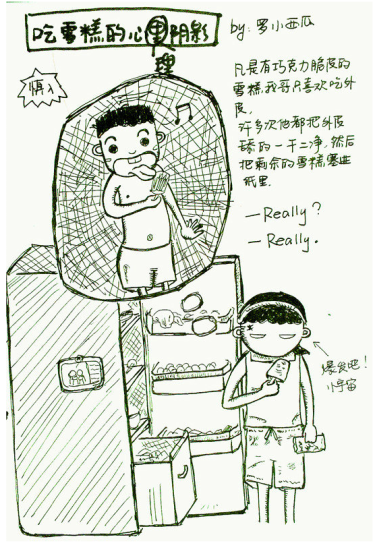 吃雪糕的心里阴影
理
by: 罗小西瓜
慎入
凡是有巧克力脆皮的
雪糕,我哥只喜欢吃外
皮.
许多次他都把外皮
舔的一干二净,然后
把剩余的雪糕塞进
纸里.
— Really?
— Really.
爆发吧!
小宇宙